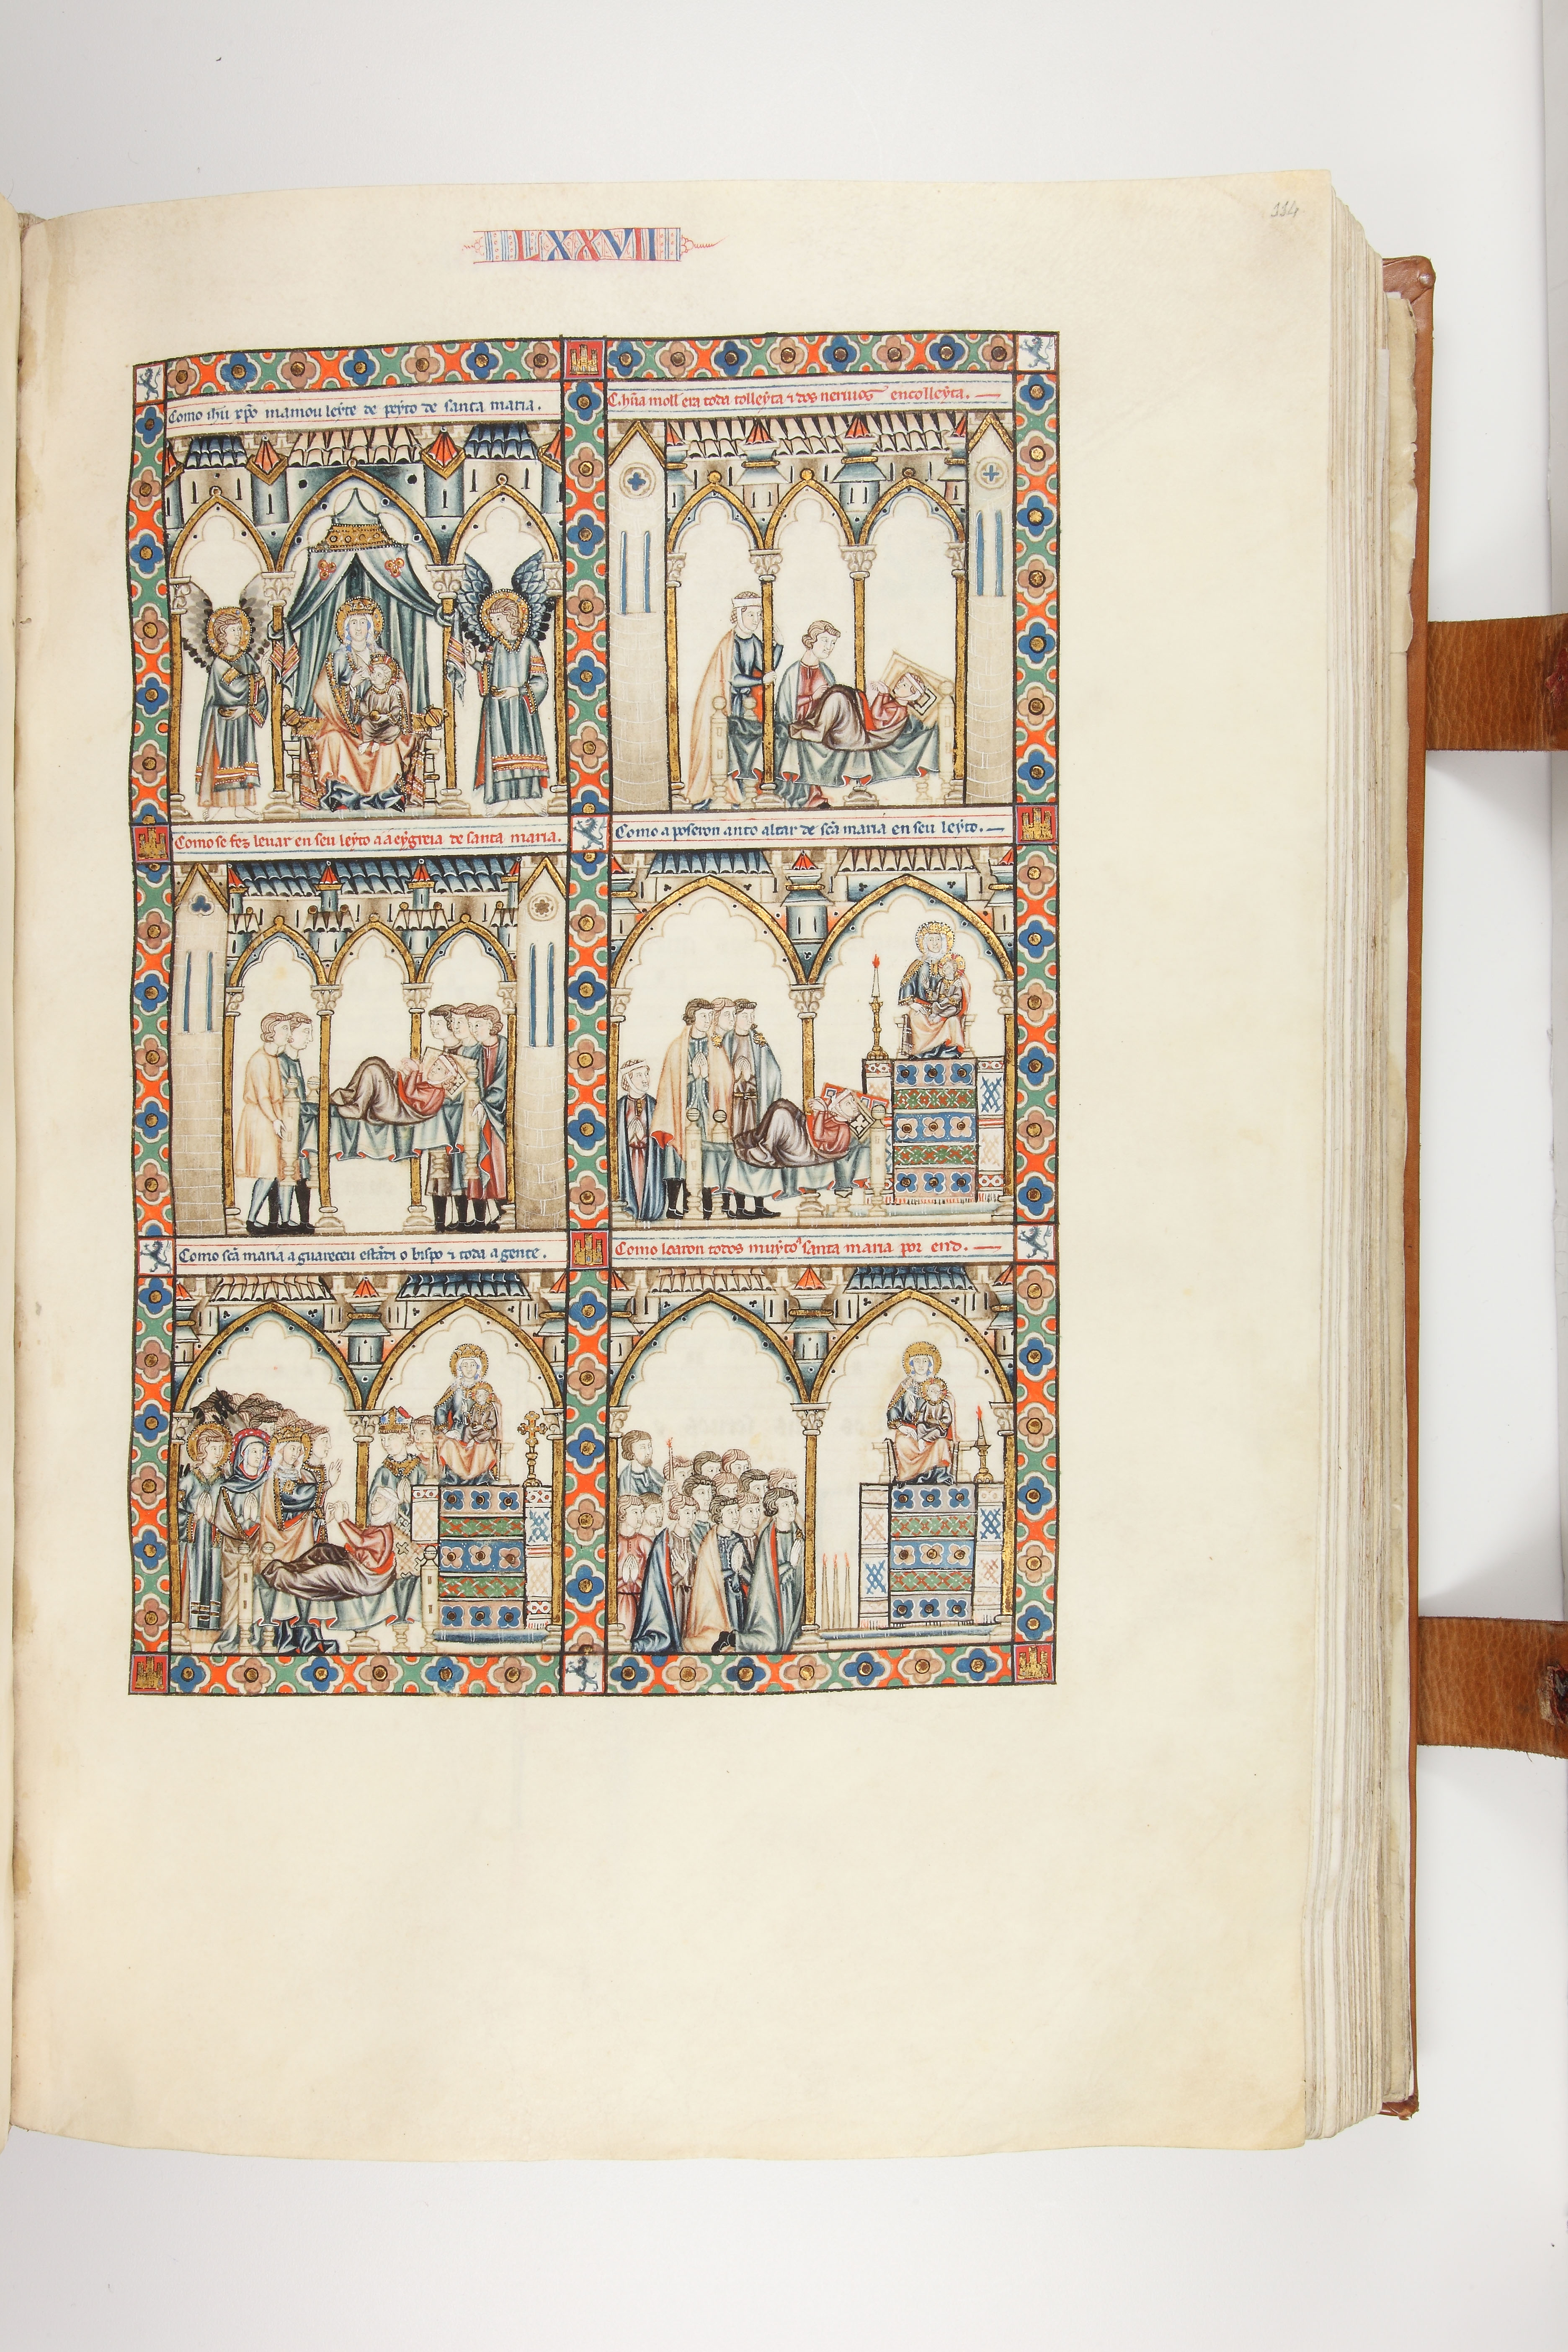 LXXVII
114
Como ihũ xpõ mamou leyte de peyto de santa maria.
C. hũa moll er era toda tolleyta ⁊ dos neruios encolleyta.
Como se fez leuar en seu leyto a a eygreia de santa maria.
Como a poseron anto altar de scã maria en seu leyto.
Como scã maria a guareceu estãdi o bispo ⁊ toda a gente.
Como loaron todos muyto a santa maria por end.